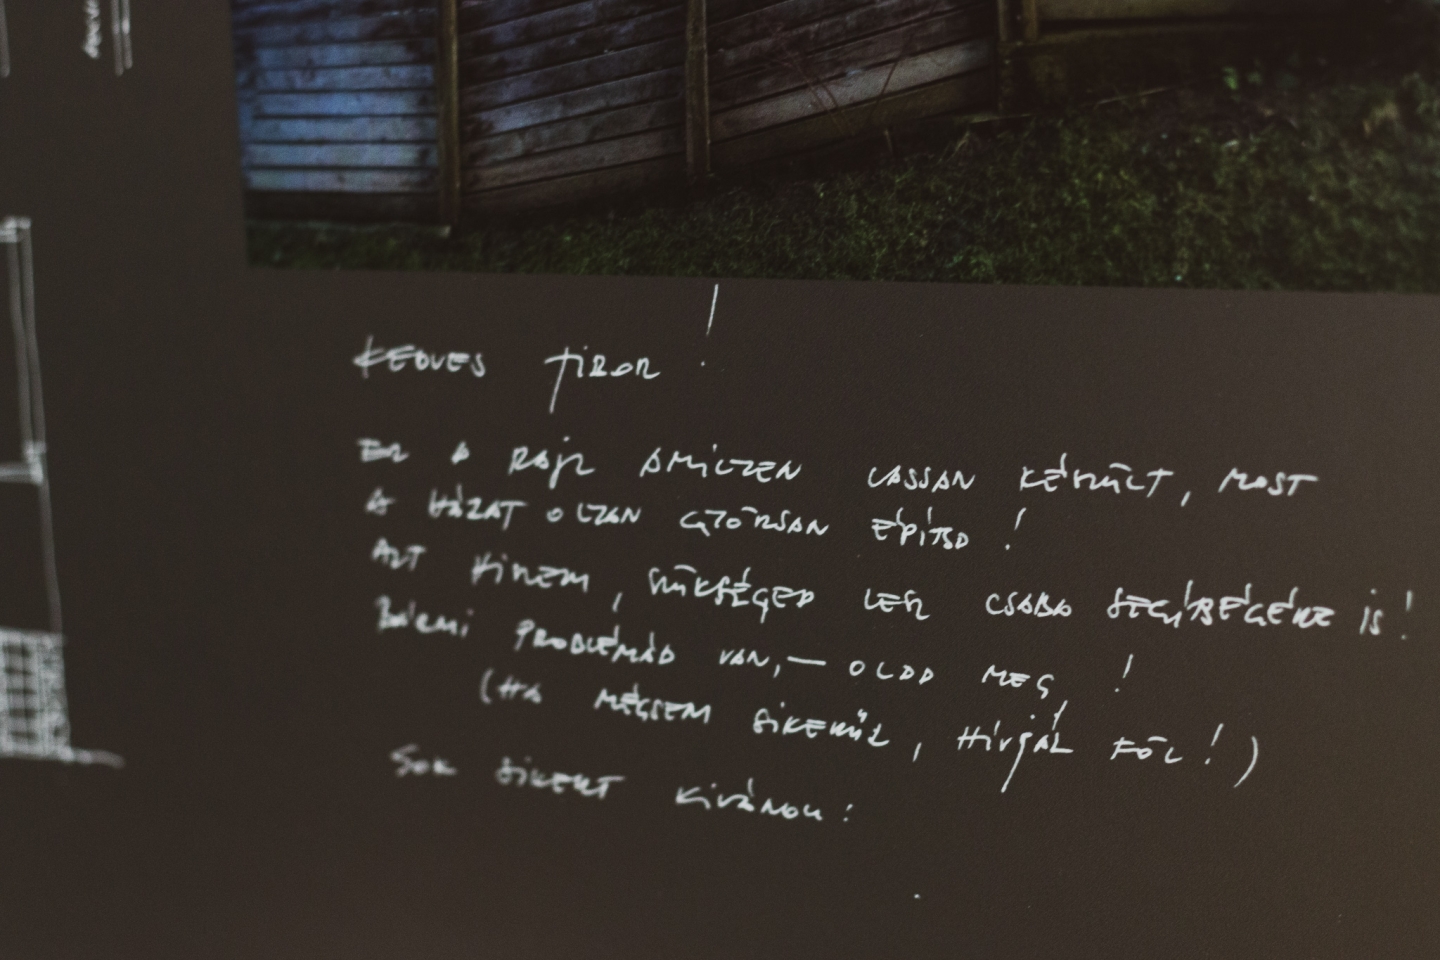 KEDVES TIBOR!
EZ A RAJZ AMILYEN LASSAN KÉSZÜLT, MOST
A HÁZAT OLYAN GYORSAN ÉPÍTSD!
AZT HISZEM, SZÜKSÉGED LESZ CSABA SEGÍTSÉGÉRE IS!
BÁRMI PROBLÉMÁD VAN, — OLDD MEG!
(HA MÉGSEM SIKERÜL, HÍVJÁL FÖL!)
SOK SIKERT KÍVÁNOK: